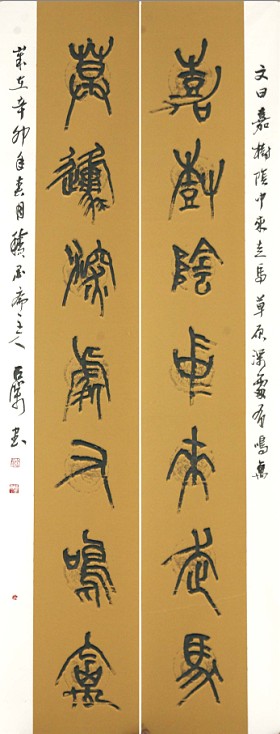 文曰嘉樹陰中來走馬草原深處有鳴禽
嘉樹陰中來走馬
草邍深處又鳴禽
歲在辛卯年春月